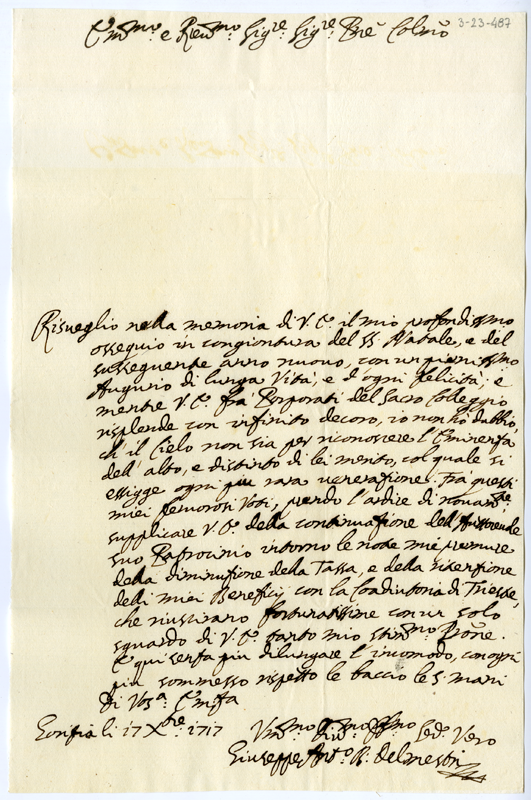 3-23-487
Em:mo e Reu:mo Sig:re Sig:re Prē Colmō
Risueglio nella memoria di V. E. il mio profondissmo
ossequio in congiontura del SS. Natale, e del
susseguente anno nuouo, con un pienissmo
Augurio di lunga Vita, e d'ogni felicità; e
mentre V. E. fra Porporati del Sacro Colleggio
risplende con infinito decoro, io non hò dubbio,
ch'il Cielo non sia per riconoscere l'Eminenza
dell'alto, e distinto di lei merito, col quale si
essigge ogni piu rara uenerazione. Frà questi
miei feruorosi Voti, prendo l'ardire di nouamte
supplicare V. E. della continuatione dell'Auttoreuole
suo Patrocinio intorno le note mie premure
della diminuzione della Tassa, e della ritenzione
delli miei Beneficij con la Coadiutoria di Trieste,
che riusciranno fortunatissime con un solo
sguardo di V. E. tanto mio stim:mo Prōne.
E qui senza piu dilungare l'incomodo, con ogni
piu sommesso rispetto le baccio le S. mani
di Vos:a Em:za
Gorizia li 17 Xbre: 1717
Vmo Seo Vero
Giuseppe Ant:o B: delmestri